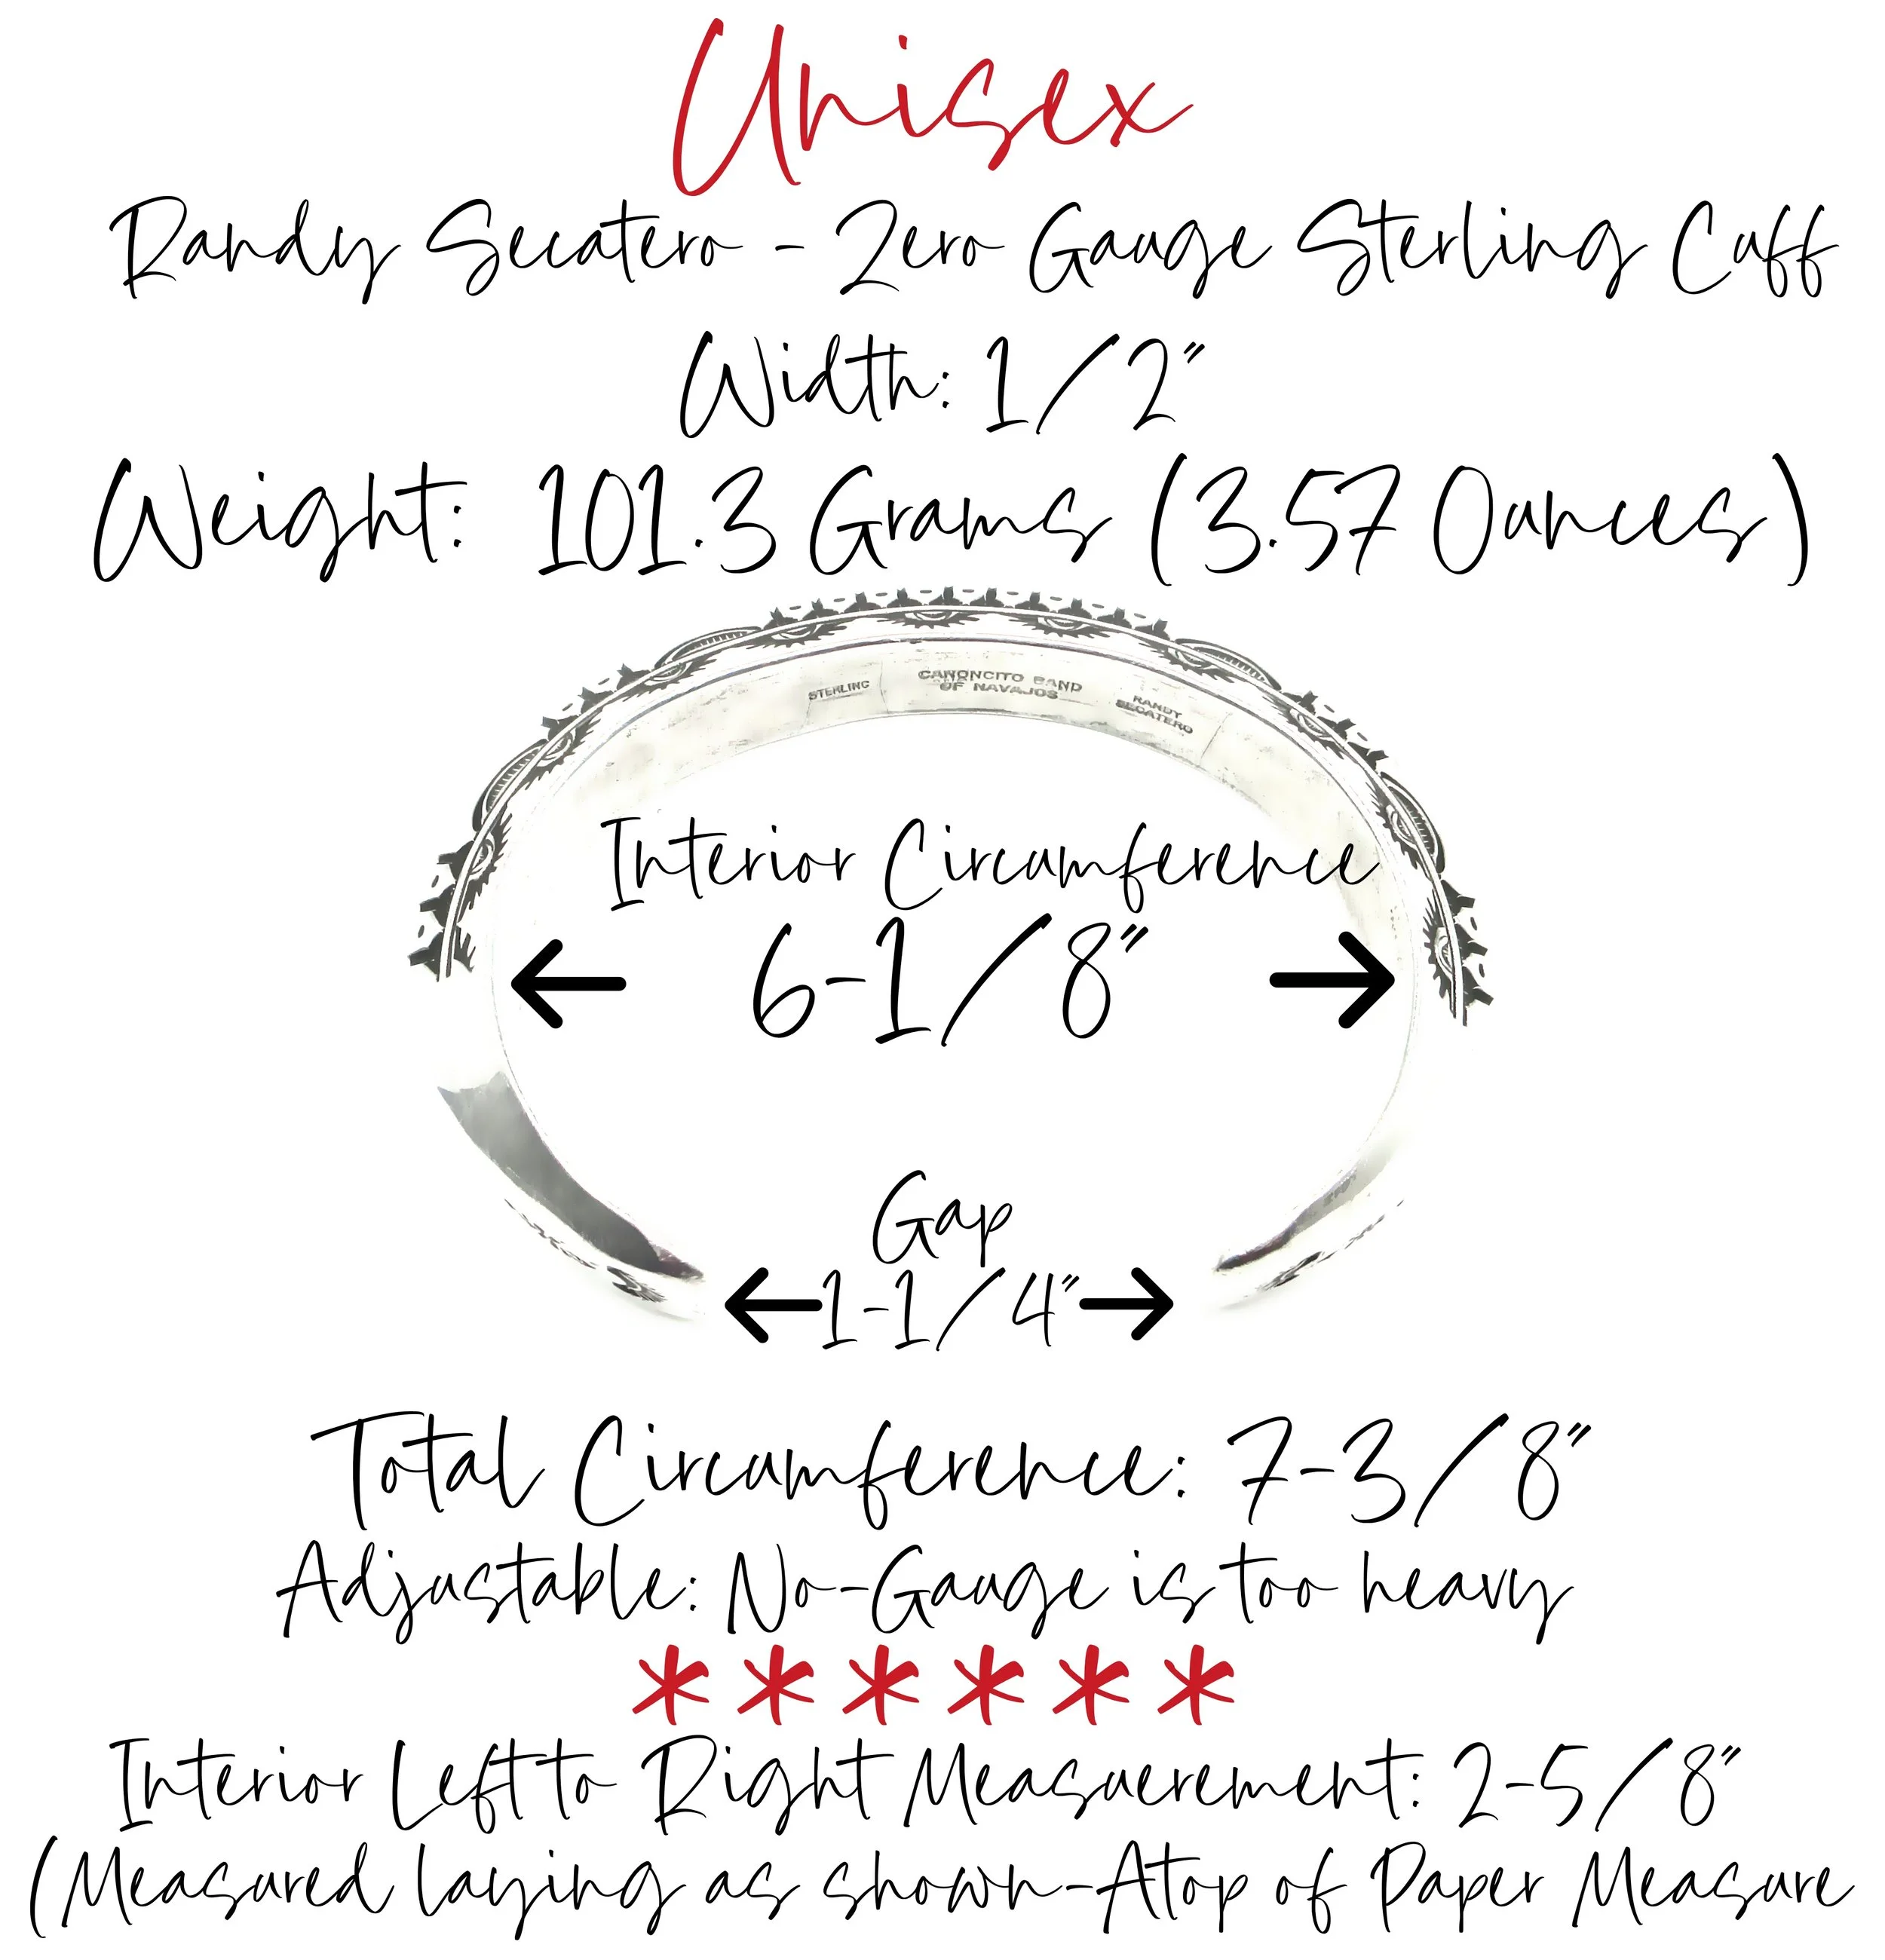 Unisex
Randy Secatero - Zero Gauge Sterling Cuff
Width: 1/2"
Weight: 101.3 Grams (3.57 Ounces)
STERLING
CANONCITO BAND
OF NAVAJOS
RANDY
SECATERO
Interior Circumference
6-1/8"
Gap
1-1/4"
Total Circumference: 7-3/8"
Adjustable: No-Gauge is too heavy
******
Interior Left to Right Measuerement: 2-5/8"
(Measured laying as shown-Atop of Paper Measure